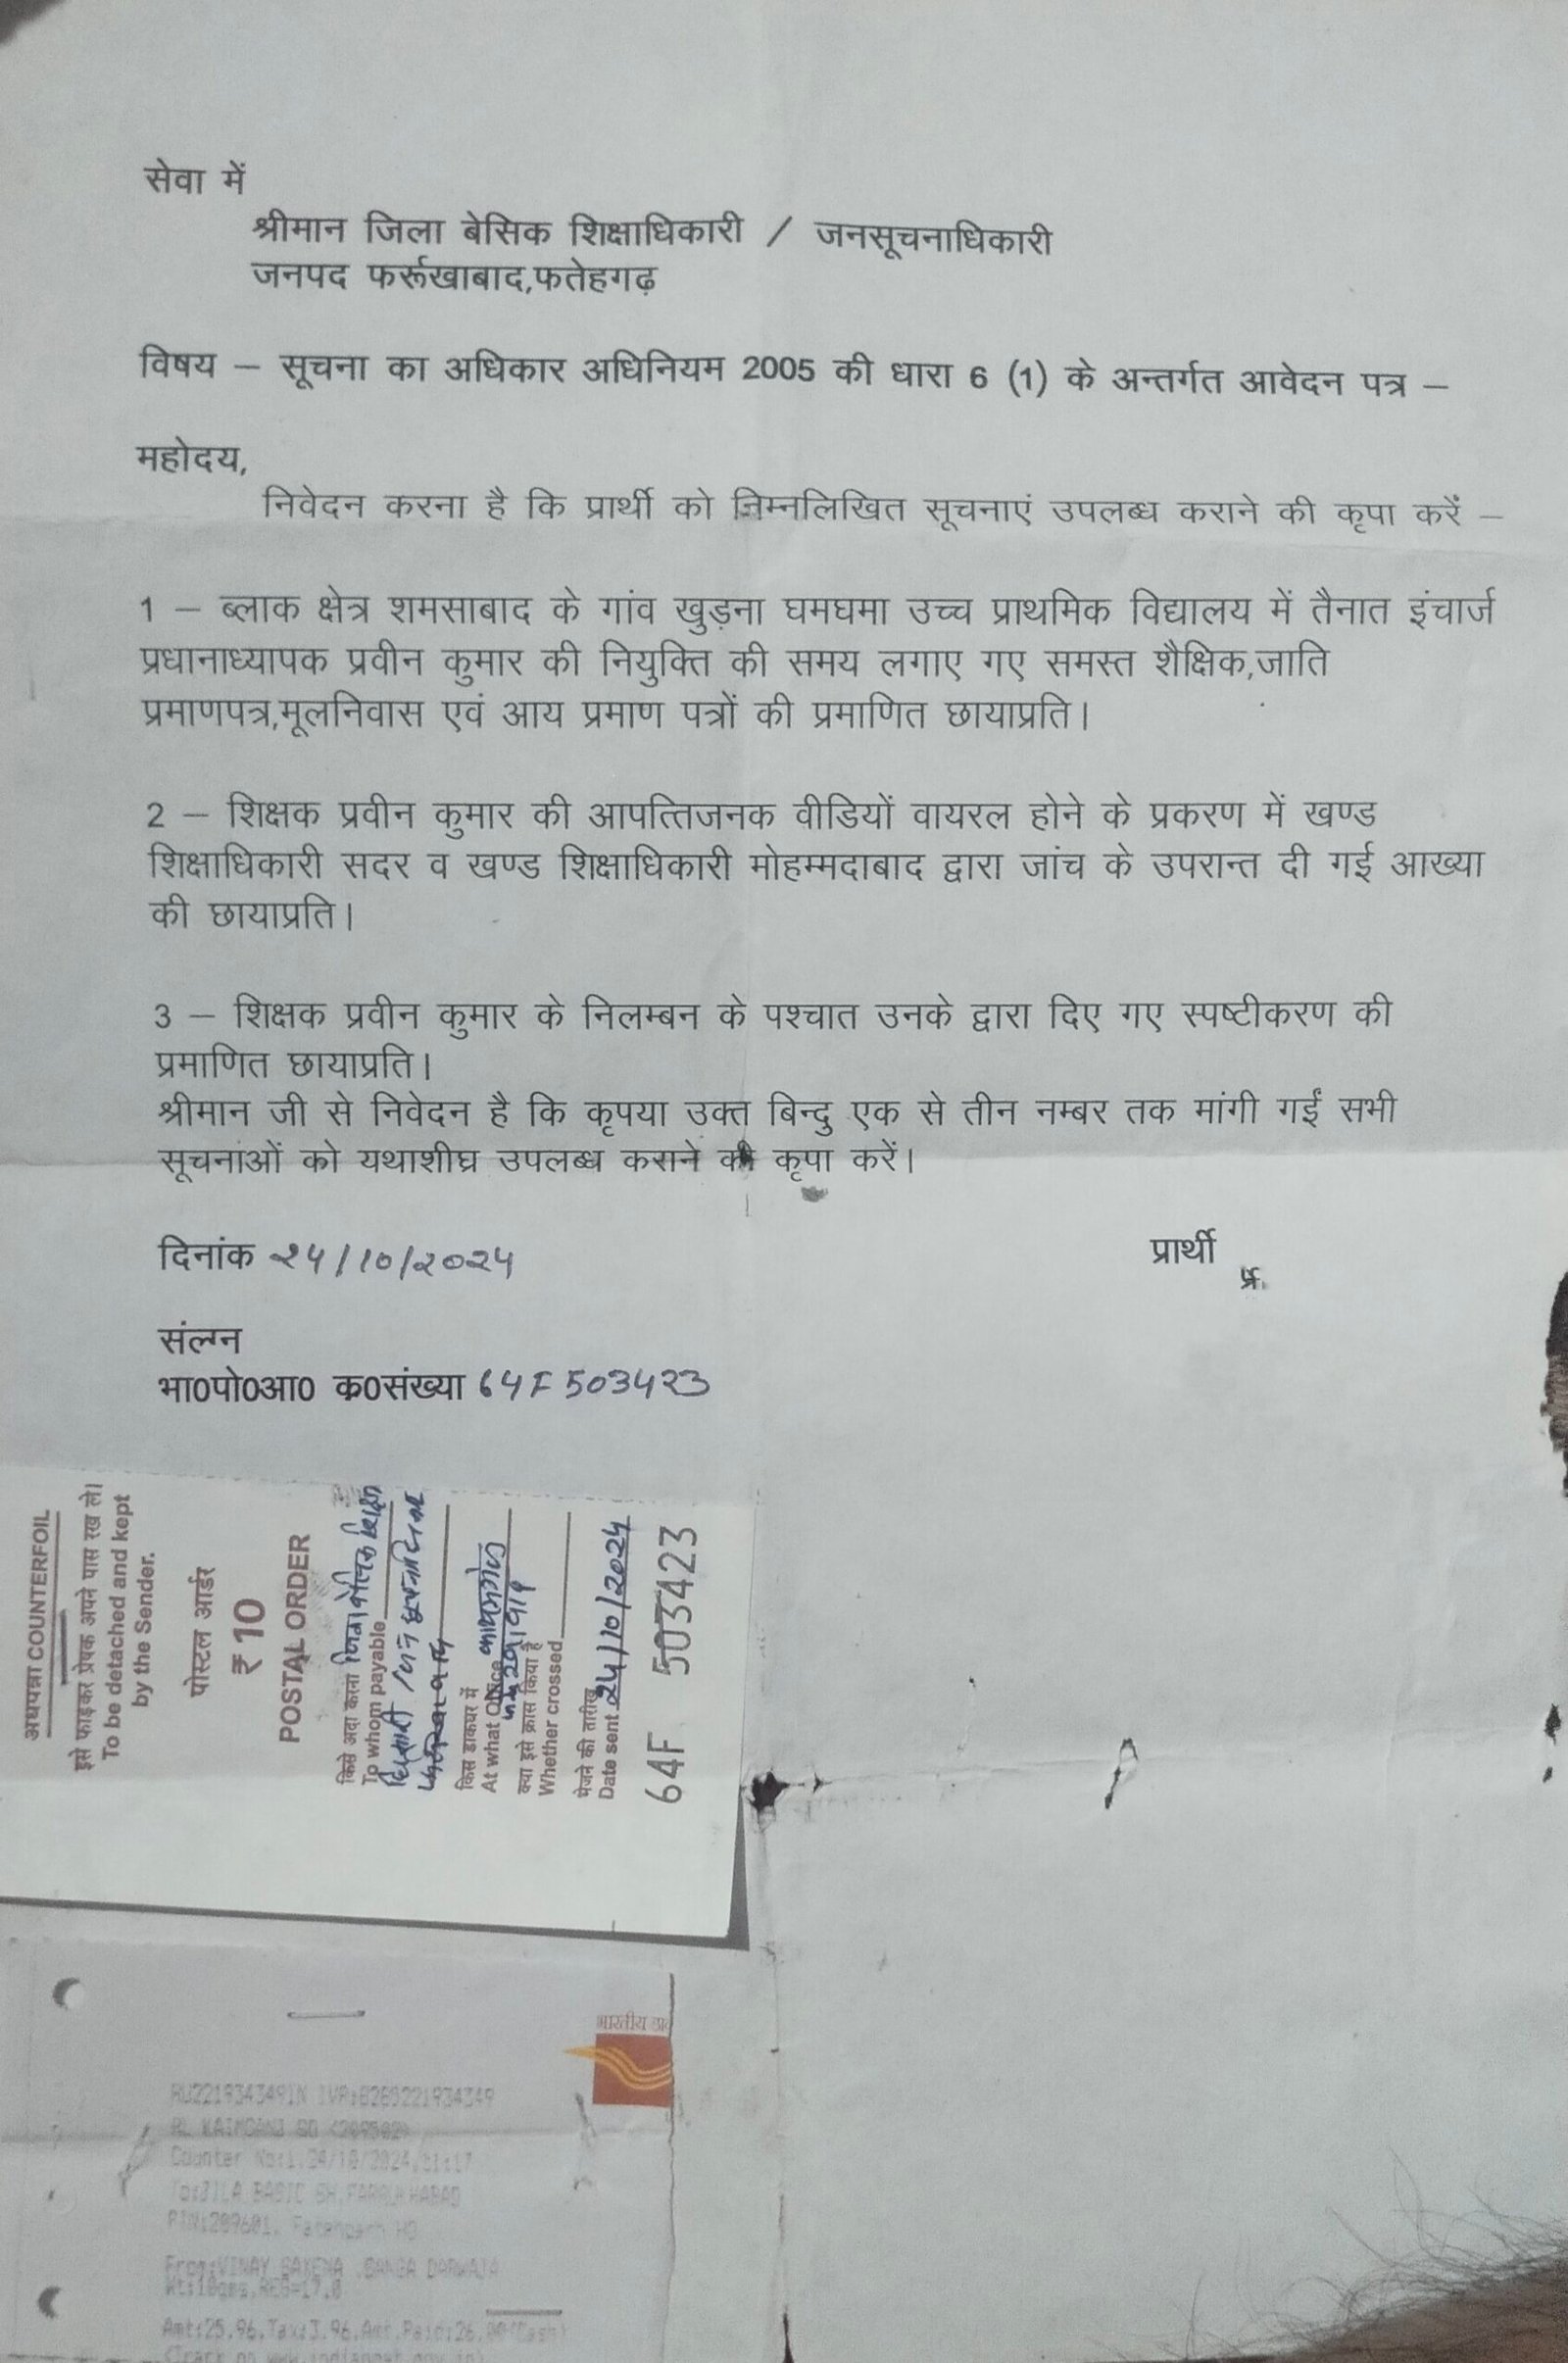 सेवा में
श्रीमान जिला बेसिक शिक्षाधिकारी / जनसूचनाधिकारी
जनपद फर्रूखाबाद,फतेहगढ़
विषय – सूचना का अधिकार अधिनियम 2005 की धारा 6 (1) के अन्तर्गत आवेदन पत्र –
महोदय,
निवेदन करना है कि प्रार्थी को निम्नलिखित सूचनाएं उपलब्ध कराने की कृपा करें –
1 – ब्लाक क्षेत्र शमसाबाद के गांव खुड़ना घमघमा उच्च प्राथमिक विद्यालय में तैनात इंचार्ज
प्रधानाध्यापक प्रवीन कुमार की नियुक्ति की समय लगाए गए समस्त शैक्षिक,जाति
प्रमाणपत्र,मूलनिवास एवं आय प्रमाण पत्रों की प्रमाणित छायाप्रति।
2 – शिक्षक प्रवीन कुमार की आपत्तिजनक वीडियों वायरल होने के प्रकरण में खण्ड
शिक्षाधिकारी सदर व खण्ड शिक्षाधिकारी मोहम्मदाबाद द्वारा जांच के उपरान्त दी गई आख्या
की छायाप्रति।
3 – शिक्षक प्रवीन कुमार के निलम्बन के पश्चात उनके द्वारा दिए गए स्पष्टीकरण की
प्रमाणित छायाप्रति।
श्रीमान जी से निवेदन है कि कृपया उक्त बिन्दु एक से तीन नम्बर तक मांगी गईं सभी
सूचनाओं को यथाशीघ्र उपलब्ध कराने की कृपा करें।
दिनांक २४/10/२०२४
प्रार्थी
प्र.
संलग्न
भा0पो0आ0 क0संख्या 64F 503423
अधपन्ना COUNTERFOIL
इसे फाड़कर प्रेषक अपने पास रख ले।
To be detached and kept
by the Sender.
पोस्टल आर्डर
₹ 10
POSTAL ORDER
किसे अदा करना जिला बेसिक शिक्षा
To whom payable
किस डाकघर में
At what Office
क्या इसे क्रास किया है
Whether crossed
भेजने की तारीख
Date sent २४/10/२०२४
64F 503423
भारतीय डाक
RU221934349IN IVR:8265221934349
RL KAIMGANJ SO <209502>
Counter No:1,24/10/2024,11:17
To:JILA BASIC SH,FARRUKHABAD
PIN:209601, Fatehgarh HO
From:VINAY SAXENA ,GANGA DARWAJA
Wt:10gms,REG=17.0
Amt:25.96,Tax:3.96,Amt.Paid:26.00(Cash)
<Track on www.indiapost.gov.in>